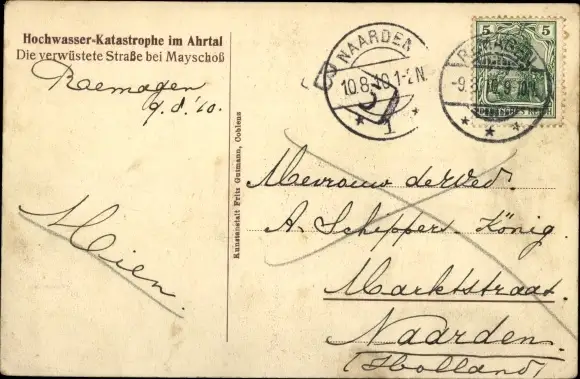 Hochwasser-Katastrophe im Ahrtal
Die verwüstete Straße bei Mayschoß
Raemagen
9.8.10.
Mien.
Kunstanstalt Fritz Gutmann, Coblenz
NAARDEN
10.8.10.1-2N
1
5 5
REMAGEN
-9.8.10.9-10N.
Mevrouw de Wed.
A. Schipper-König.
Marktstraat.
Naarden.
(Holland)